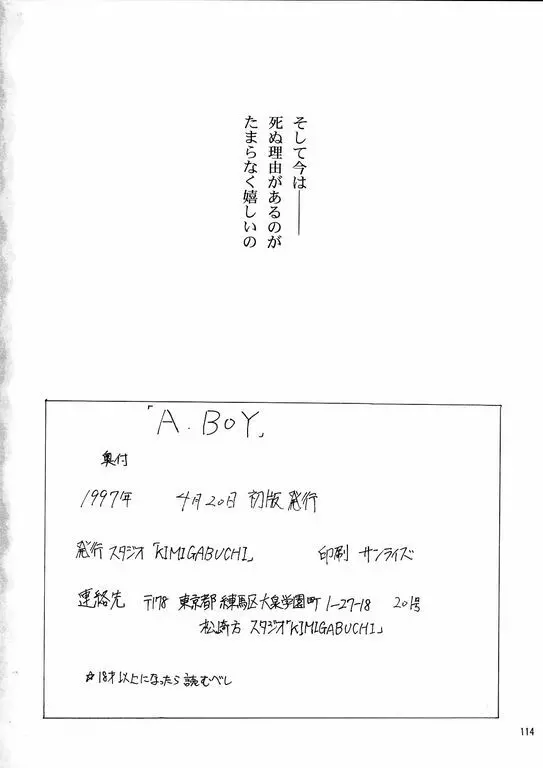 そして今は――
死ぬ理由があるのが
たまらなく嬉しいの
「A.BOY」
奥付
1997年 4月20日 初版発行
発行 スタジオ「KIMIGABUCHI」 印刷 サンライズ
連絡先 〒178 東京都練馬区大泉学園町1-27-18 201号
松崎方 スタジオ「KIMIGABUCHI」
☆18才以上になったら読むべし
114